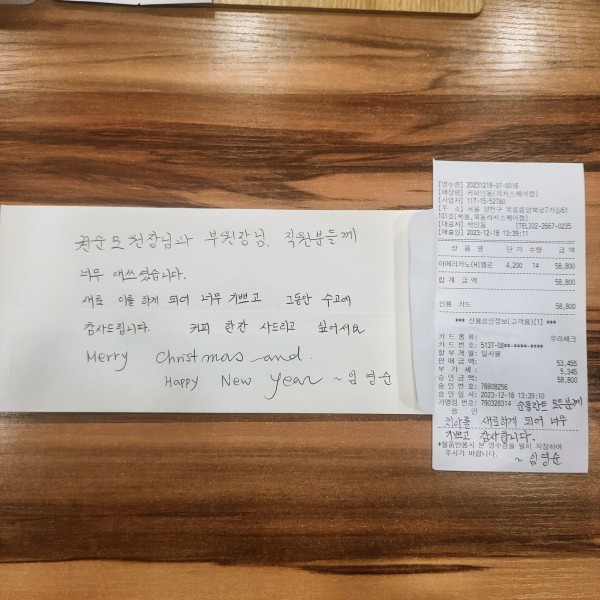 권순모 원장님과 부원장님, 직원분들께
너무 애쓰셨습니다.
새로 이를 하게 되어 너무 기쁘고 그동안 수고에
감사드립니다. 커피 한잔 사드리고 싶어서요
Merry Christmas and.
Happy New Year ~ 임영순
[영수증] 20231218-01-0016
[매장명] 커피만동(리치스퀘어점)
[사업자] 117-15-52760
[주 소] 서울 양천구 목동중앙북로7가길61
101호(목동,목동리치스퀘어점)
[대표자] [TEL]02-2667-0235
[매출일] 2023-12-18 13:39:11
상 품 명 단 가 수량 금 액
아메리카노(H)멜로 4,200 14 58,800
합계 금액 58,800
신용 카드 58,800
*** 신용승인정보(고객용)[1] ***
카드종류: 우리체크
카드 번호: 5137-08**-****-****
할부개월: 일시불
판매금액: 53,455
부 가 세: 5,345
승인금액: 58,800
승인번호: 78808256
승인일시: 2023-12-18 13:39:10
가맹점 번호: 790328314 순플란트 모든분께
승 인
치아를 새로하게 되어 너무
기쁘고 감사합니다.
*물품반품시 본 영수증을 필히 지참하여
주시기 바랍니다. ~ 임영순